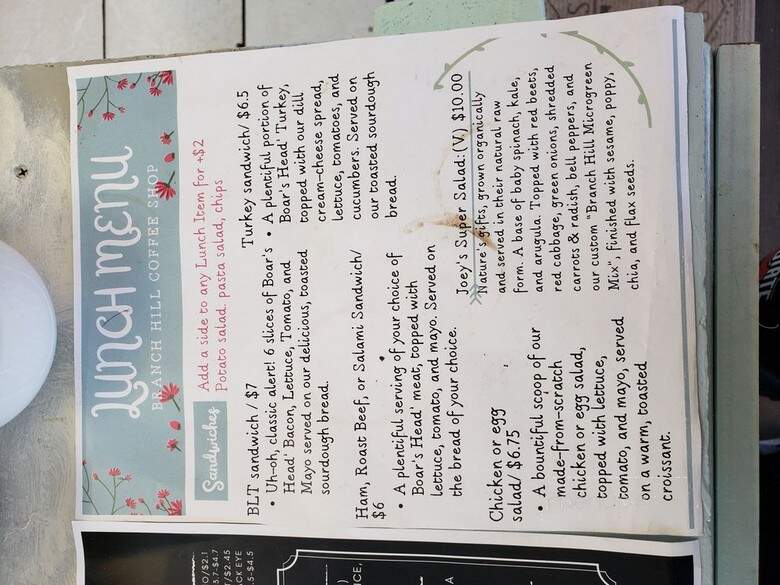 LUNCH MENU
BRANCH HILL COFFEE SHOP
Sandwiches
Add a side to any Lunch Item for +$2
Potato salad. pasta salad, chips
BLT sandwich / $7
• Uh-oh, classic alert! 6 slices of Boar's
Head' Bacon, Lettuce, Tomato, and
Mayo served on our delicious, toasted
sourdough bread.
Ham, Roast Beef, or Salami Sandwich/
$6
• A plentiful serving of your choice of
Boar's Head' meat, topped with
lettuce, tomato, and mayo. Served on
the bread of your choice.
Chicken or egg
salad/ $6.75
• A bountiful scoop of our
made-from-scratch
chicken or egg salad,
topped with lettuce,
tomato, and mayo, served
on a warm, toasted
croissant.
Turkey sandwich/ $6.5
• A plentiful portion of
Boar's Head' Turkey,
topped with our dill
cream-cheese spread,
lettuce, tomatoes, and
cucumbers. Served on
our toasted sourdough
bread.
Joey's Super Salad:(V) $10.00
Nature's gifts, grown organically
and served in their natural raw
form. A base of baby spinach, kale,
and arugula. Topped with red beets,
red cabbage, green onions, shredded
carrots & radish, bell peppers, and
our custom "Branch Hill Microgreen
Mix", finished with sesame, poppy,
chia, and flax seeds.
O/$2.1
3.7-$4.7
/$2.45
CK EYE
.5-$4.5
ICE,
A